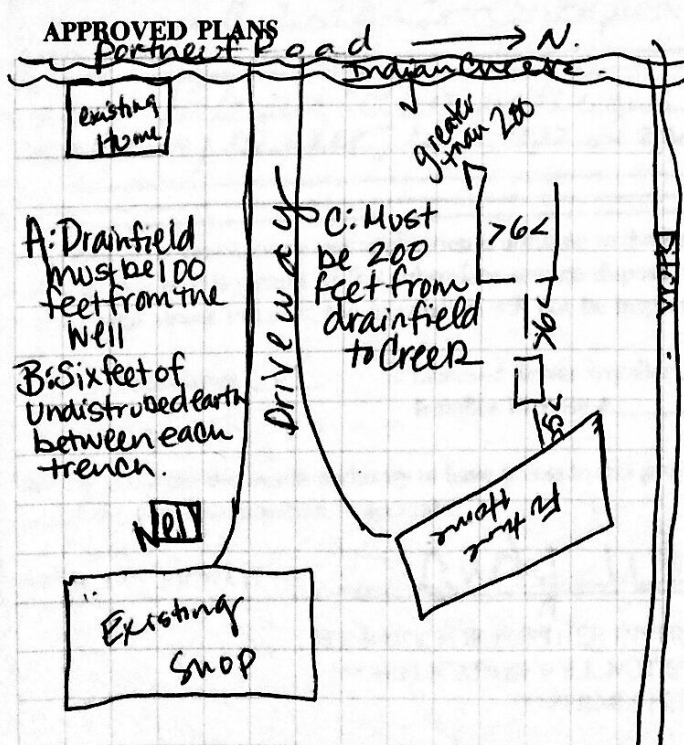 APPROVED PLANS
Portneuf Road → N.
Indian Creek
existing
Home
greater
than 200
A: Drainfield
must be 100
feet from the
well
B: Six feet of
undistrubed earth
between each
trench.
Driveway
C: Must
be 200
feet from
drainfield
to Creek
>6<
>6<
>5<
Future
Home
Well
Existing
Shop